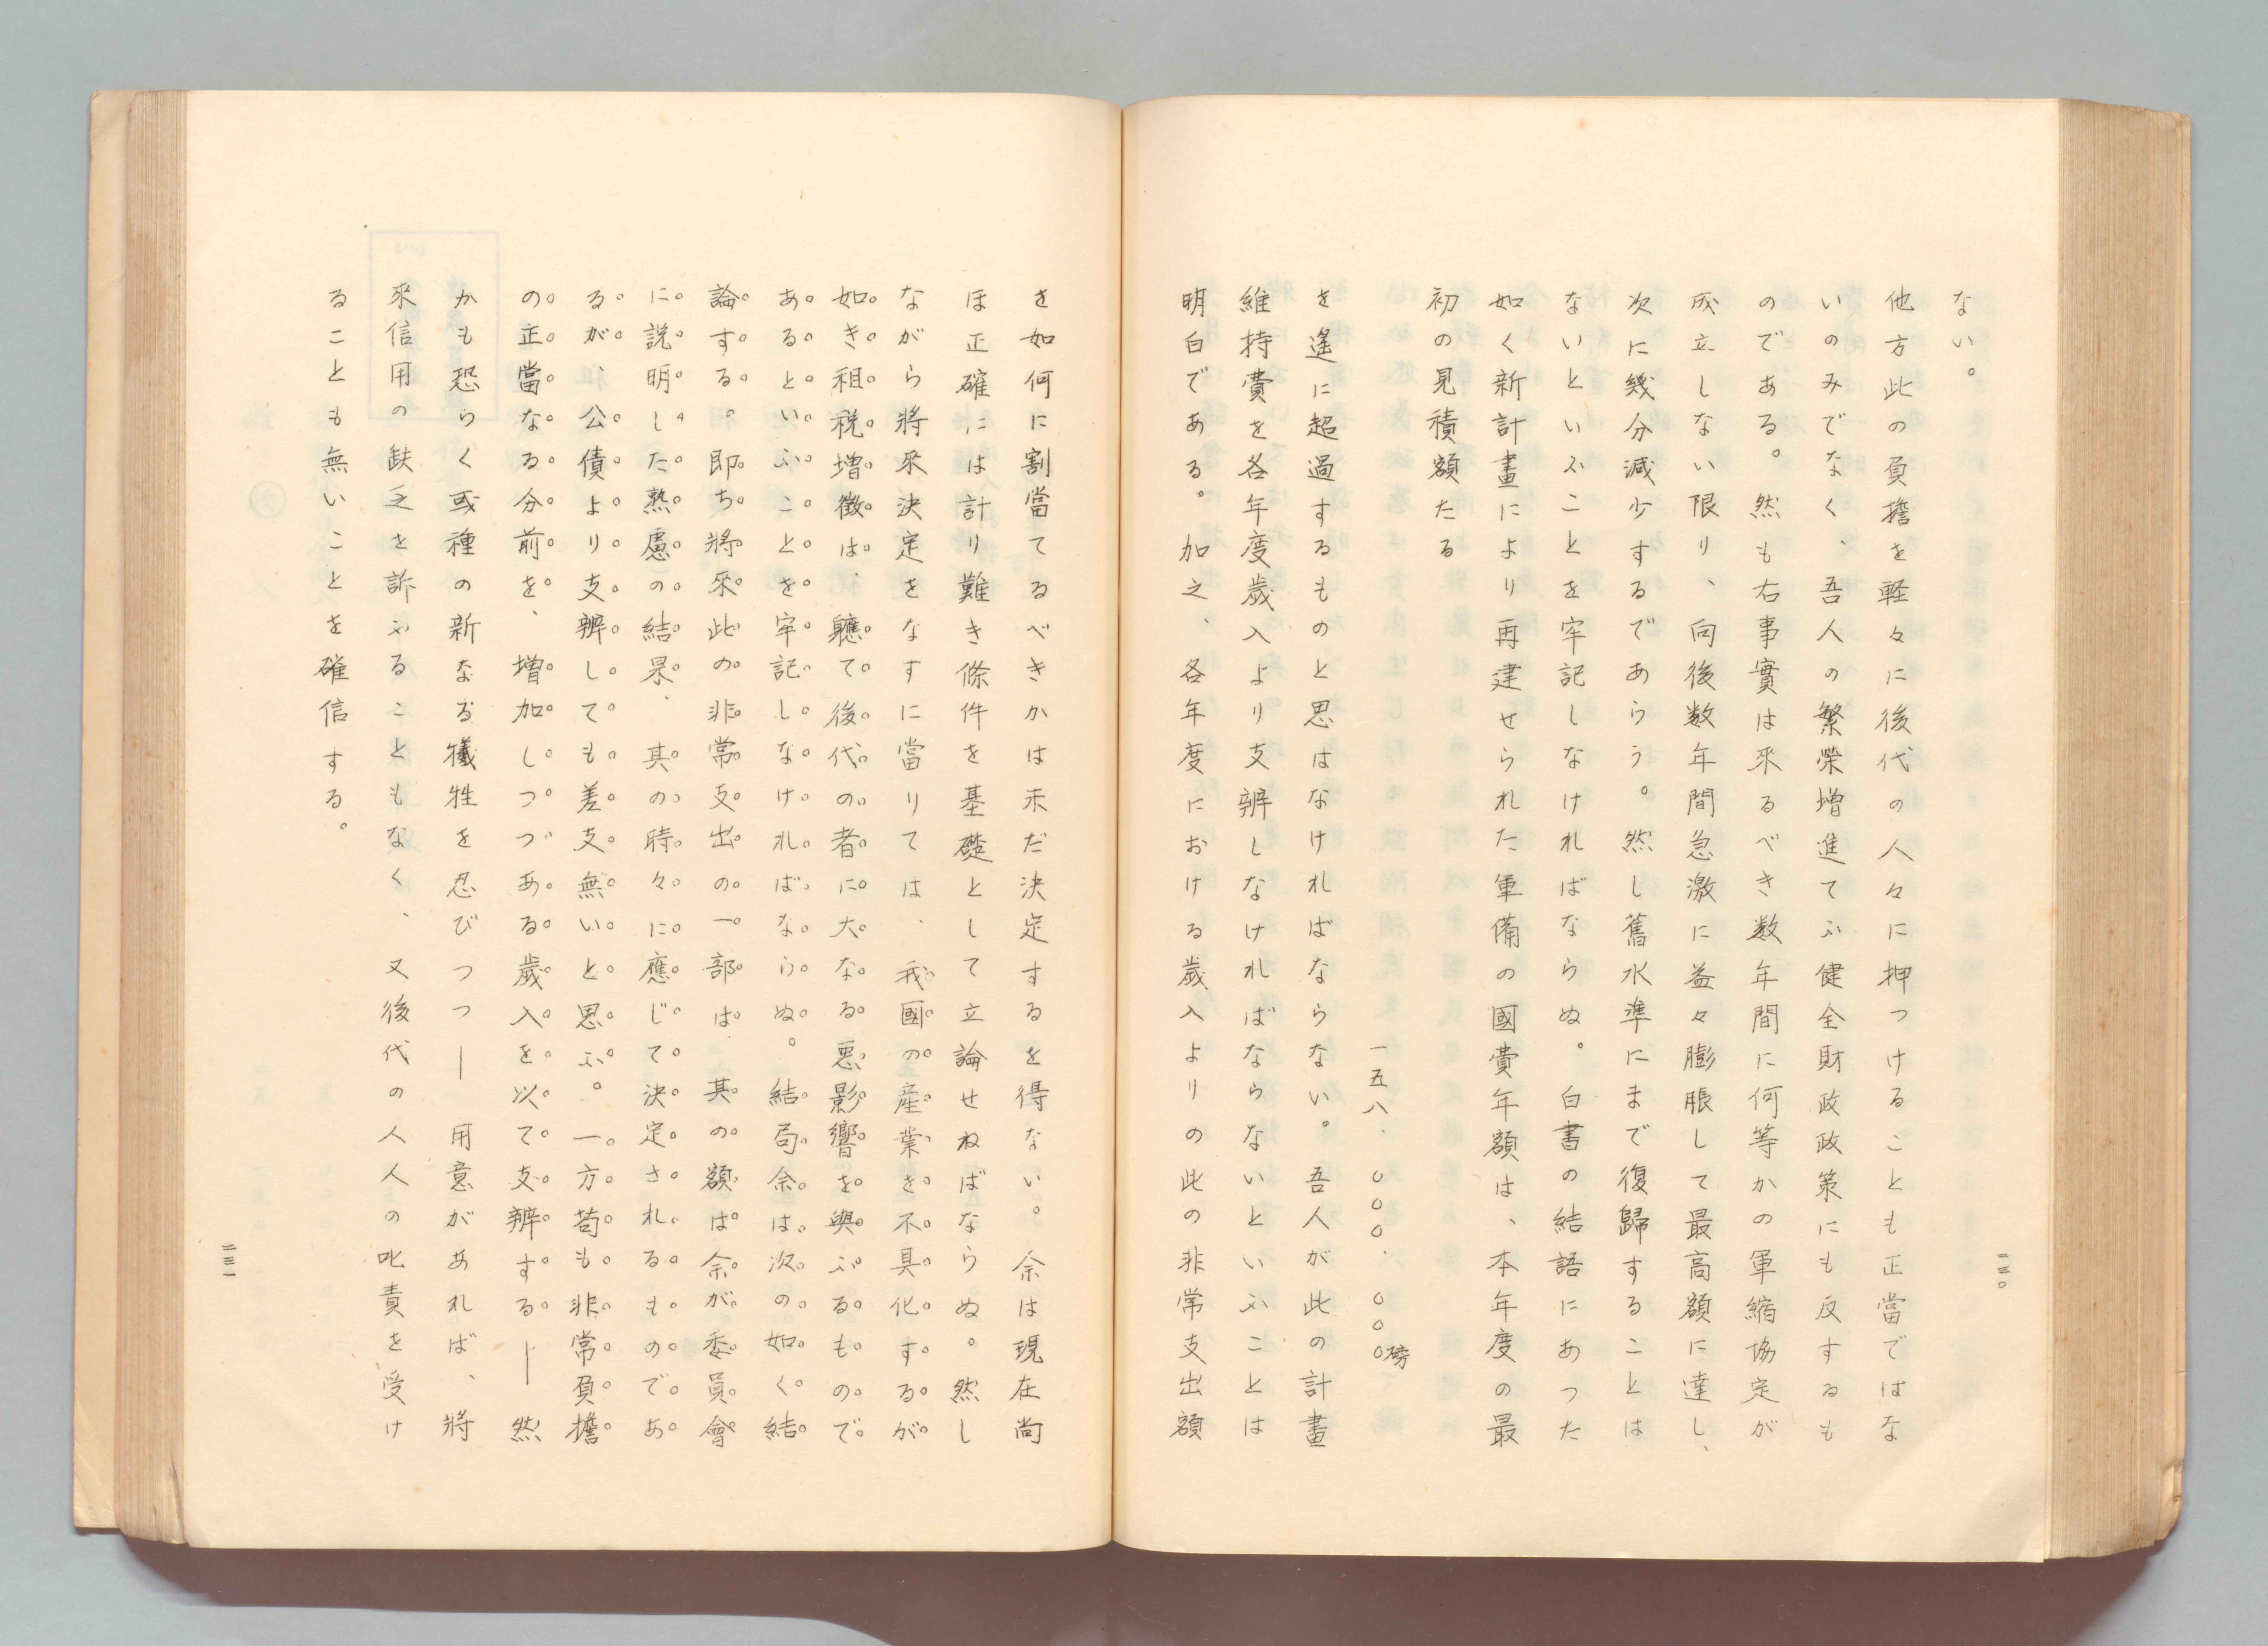 ない。
他方此の負擔を軽々に後代の人々に押つけることも正當ではな
いのみでなく、吾人の繁榮増進てふ健全財政政策にも反するも
のである。然も右事實は來るべき数年間に何等かの軍縮協定が
成立しない限り、向後数年間急激に益々膨脹して最高額に達し、
次に幾分減少するであらう。然し舊水準にまで復歸することは
ないといふことを牢記しなければならぬ。白書の結語にあつた
如く新計畫により再建せられた軍備の國費年額は、本年度の最
初の見積額たる
一五八.〇〇〇.〇〇〇磅
を遙に超過するものと思はなければならない。吾人が此の計畫
維持費を各年度歳入より支辨しなければならないといふことは
明白である。加之、各年度における歳入よりの此の非常支出額
一三〇
を如何に割當てるべきかは未だ決定するを得ない。余は現在尚
ほ正確には計り難き條件を基礎として立論せねばならぬ。然し
ながら將來決定をなすに當りては、我國の産業を不具化するが
如き租税増徴は、軈て後代の者に大なる悪影響を與ふるもので
あるといふことを牢記しなければならぬ。結局余は次の如く結
論する。即ち將來此の非常支出の一部は、其の額は余が委員會
に説明した熟慮の結果、其の時々に應じて決定されるものであ
るが、公債より支辨しても差支無いと思ふ。一方苟も非常負擔
の正當なる分前を、増加しつつある歳入を以て支辨する―然
かも恐らく或種の新なる犠牲を忍びつつ―用意があれば、將
來信用の缺乏を訴ふることもなく、又後代の人人の叱責を受け
ることも無いことを確信する。
一三一